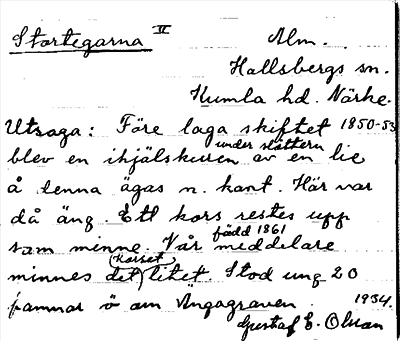 Stortegarna II
Alm.
Hallsbergs sn.
Kumla hd. Närke.
Utsaga: Före laga skiftet 1850-53
blev en ihjälskuren under slåttern av en lie
å denna ägas n. kant. Här var
då äng. Ett kors restes upp
som minne. Vår meddelare född 1861
minnes det (korset) litet. Stod ung 20
famnar ö om Ängagraven. 1934.
Gustaf E. Olsson